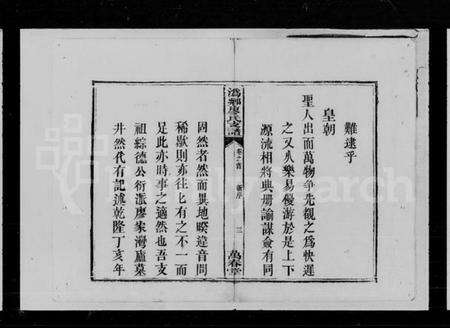 難逮乎
皇朝
聖人出而萬物爭先覩之為快遲
之又久樂易優游於是上下
源流相將典冊諭謀僉有同
溈鄉廖氏支譜
卷之首
新序
三
萬春堂
固然者然而異地睽違音問
稀歇則亦往乜有之不一而
足此亦時事之適然也吾支
祖綜德公衍派廖家灣廬墓
井然代有記述乾隆丁亥年
FamilySearch